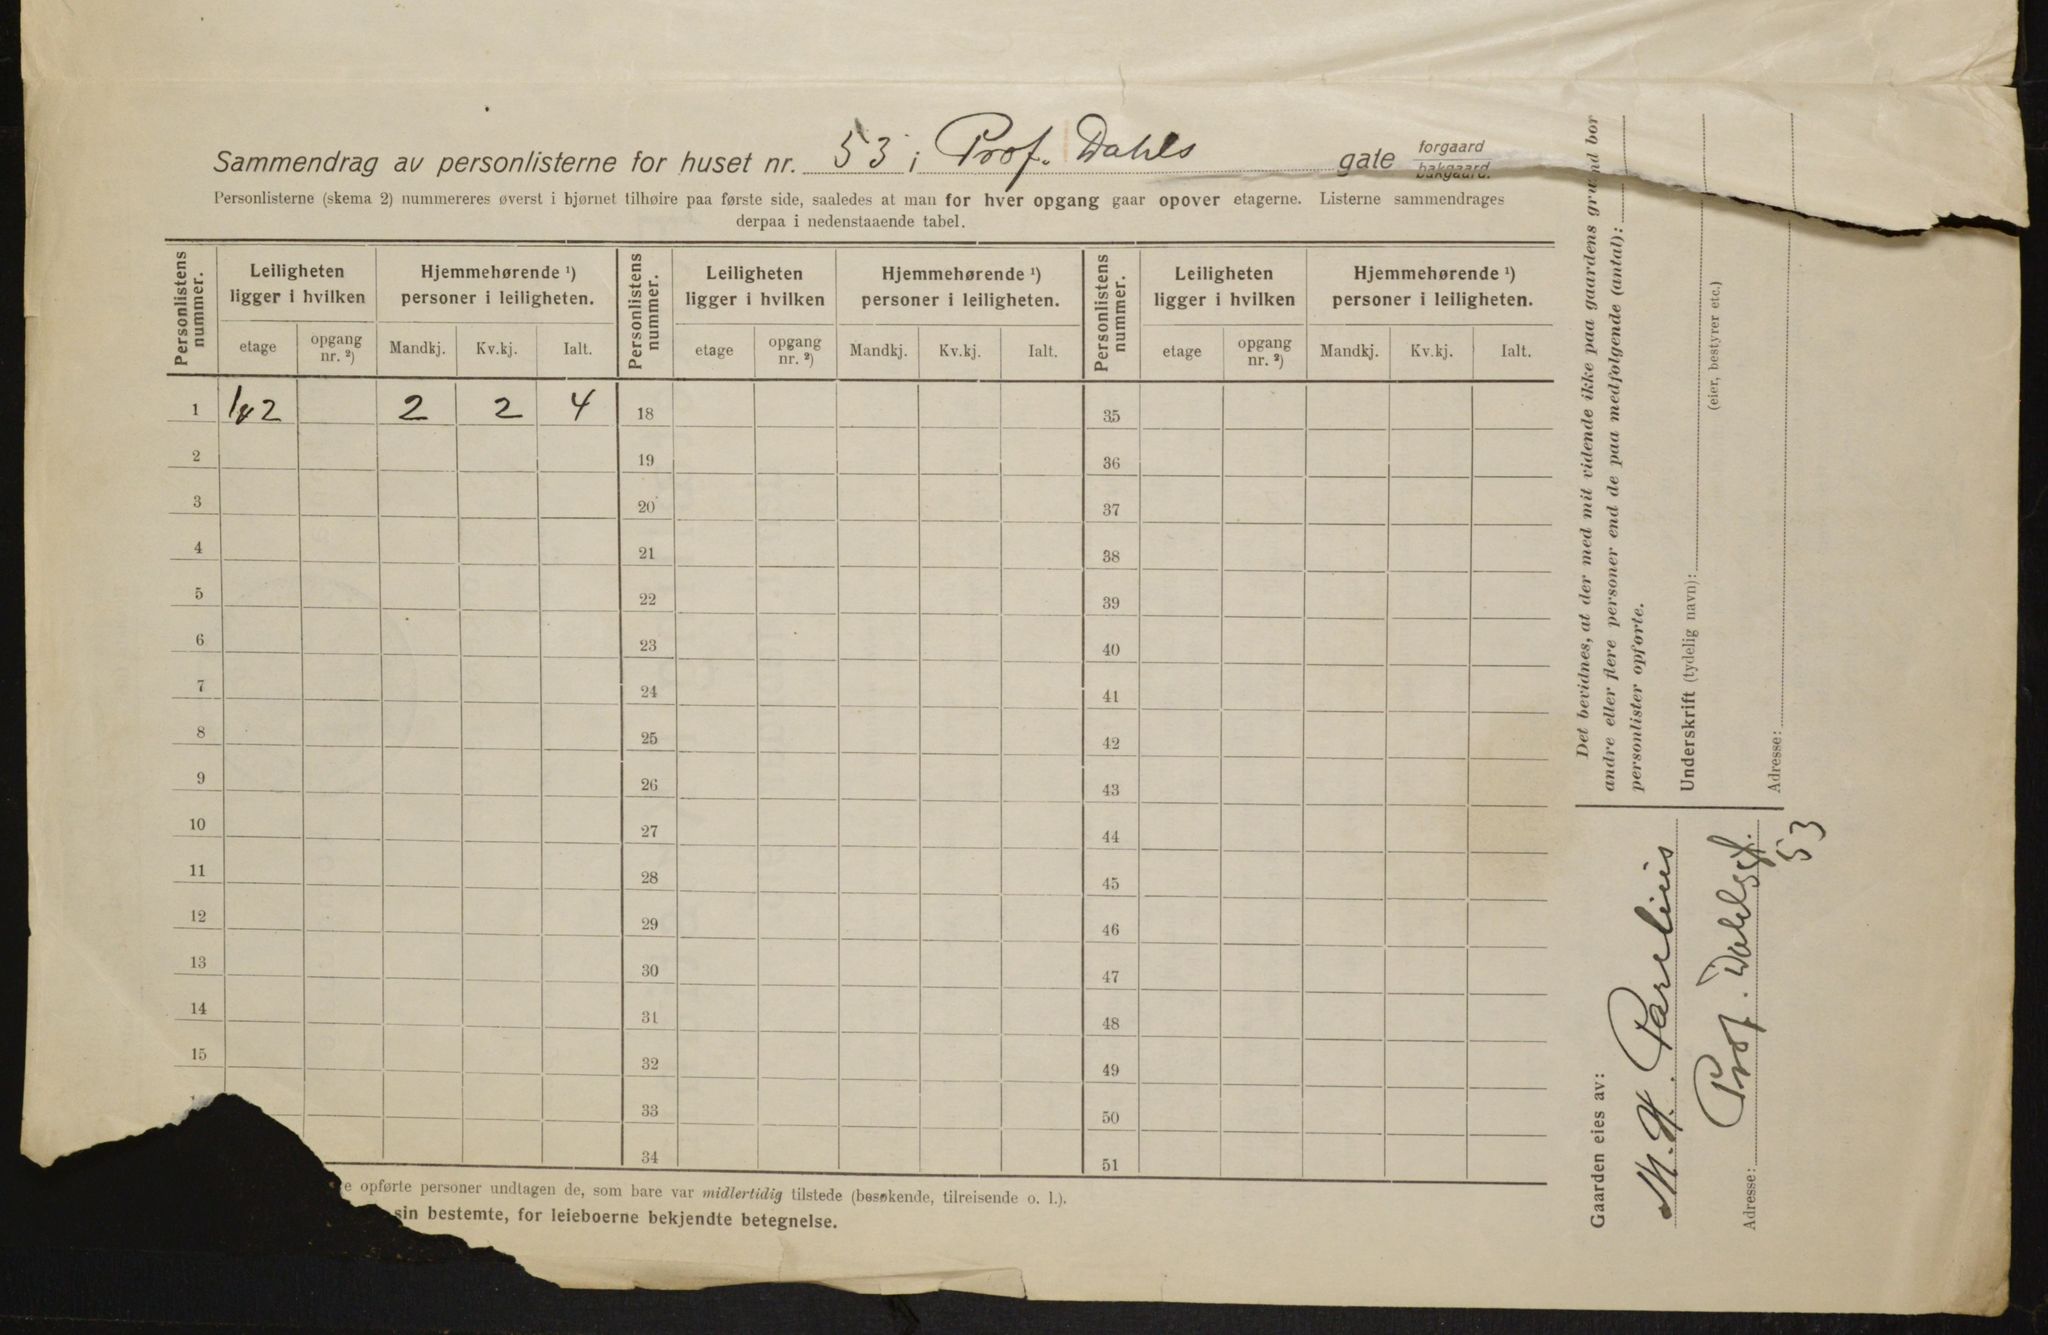 Sammendrag av personlisterne for huset nr. 53 i Prof. Dahls gate forgaard bakgaard.
Personlisterne (skema 2) nummereres øverst i hjørnet tilhøire paa første side, saaledes at man for hver opgang gaar opover etagerne. Listerne sammendrages
derpaa i nedenstaaende tabel.
Personlistens nummer. Leiligheten ligger i hvilken Hjemmehørende ¹) personer i leiligheten. Personlistens nummer. Leiligheten ligger i hvilken Hjemmehørende ¹) personer i leiligheten. Personlistens nummer. Leiligheten ligger i hvilken Hjemmehørende ¹) personer i leiligheten.
etage opgang nr. ²) Mandkj. Kv.kj. Ialt. etage opgang nr. ²) Mandkj. Kv.kj. Ialt. etage opgang nr. ²) Mandkj. Kv.kj. Ialt.
1 1&2 2 2 4 18 35
2 19 36
3 20 37
4 21 38
5 22 39
6 23 40
7 24 41
8 25 42
9 26 43
10 27 44
11 28 45
12 29 46
13 30 47
14 31 48
15 32 49
33 50
34 51
opførte personer undtagen de, som bare var midlertidig tilstede (besøkende, tilreisende o. l.).
sin bestemte, for leieboerne bekjendte betegnelse.
Det bevidnes, at der med mit vidende ikke paa gaardens grund bor
andre eller flere personer end de paa medfølgende (antal):
personlister opførte.
Underskrift (tydelig navn):
(eier, bestyrer etc.)
Adresse:
Gaarden eies av:
M. H. Parelius
Adresse: Prof. Dahlsgt.
53